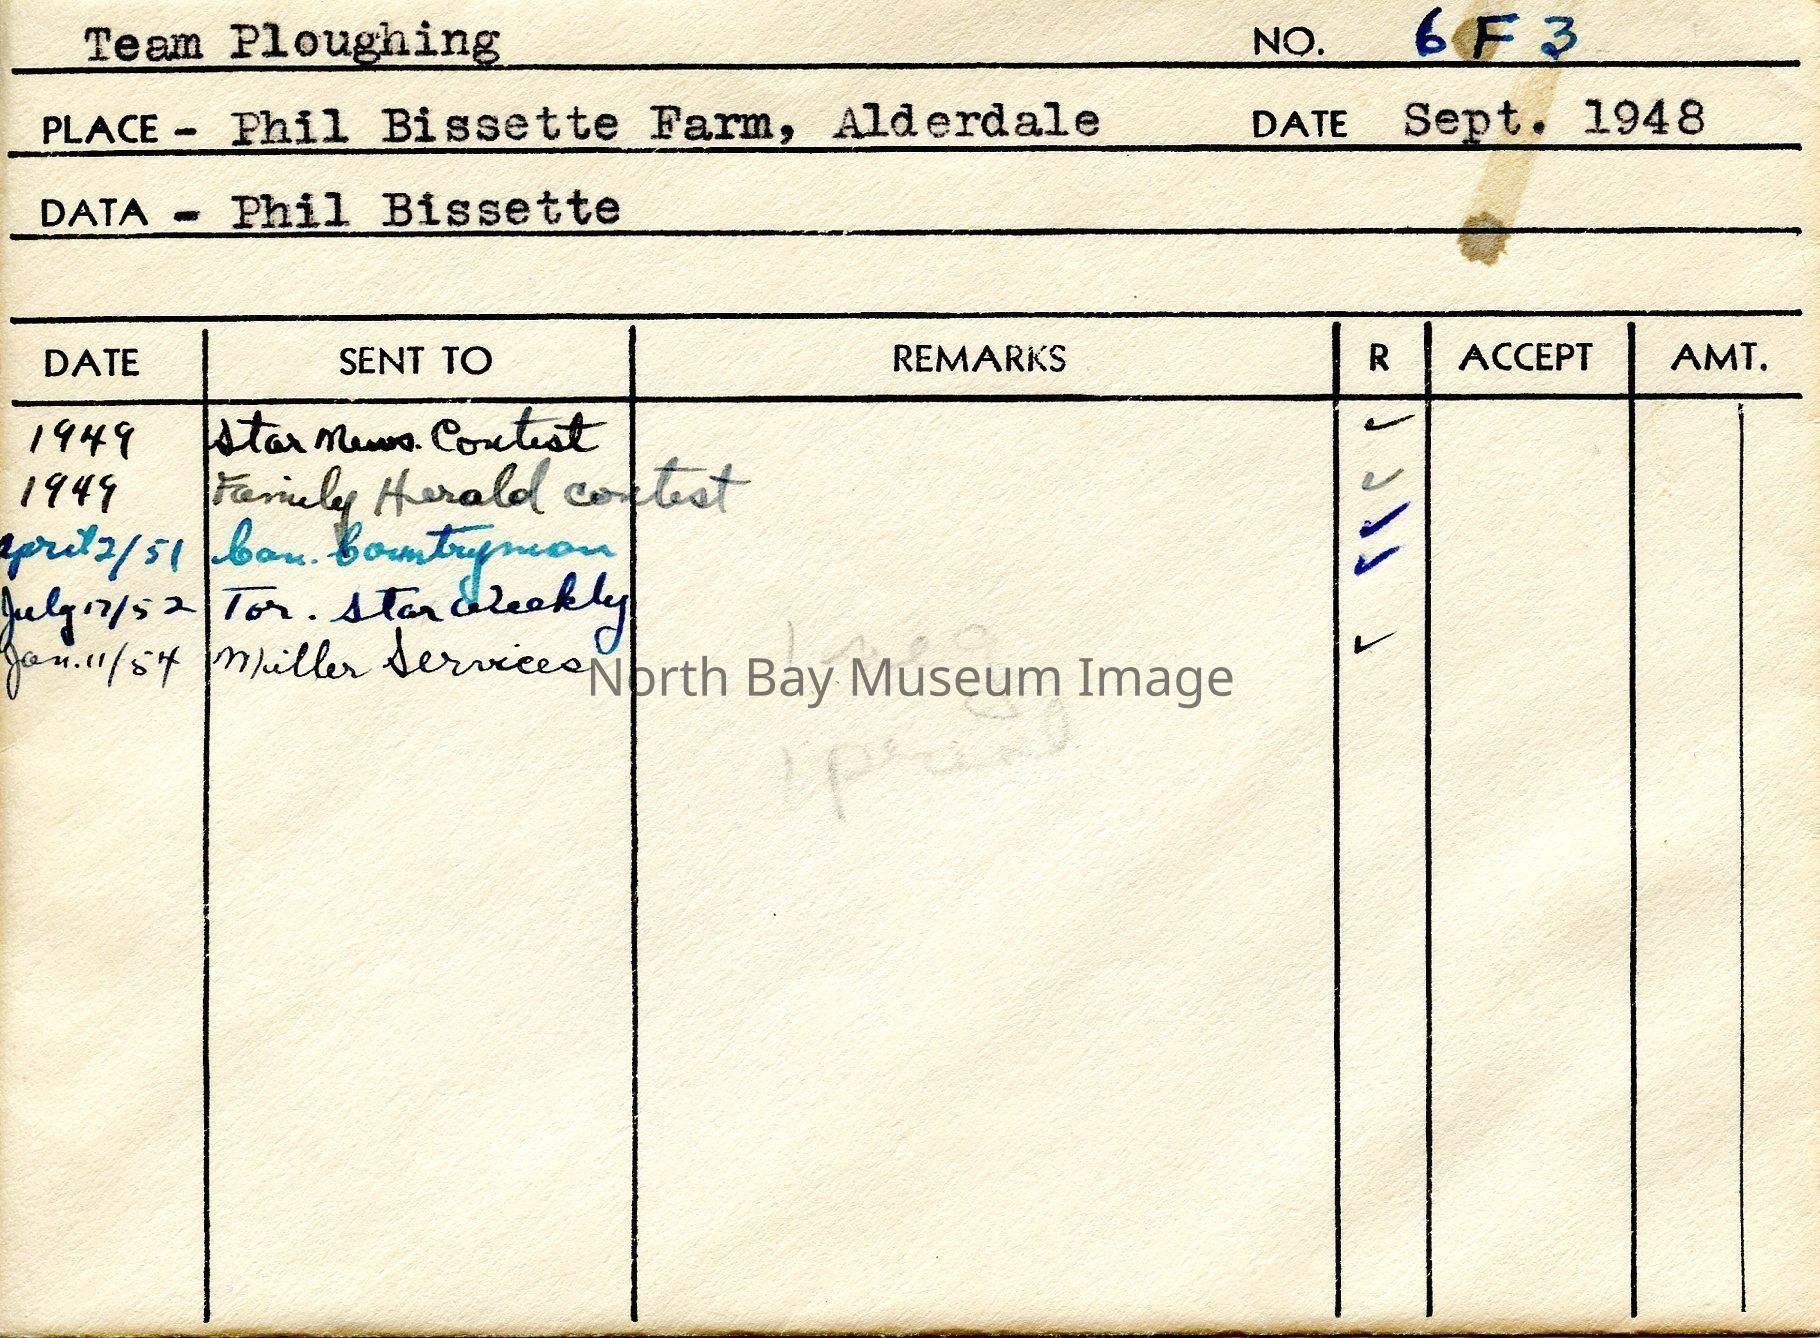 Team Ploughing NO. 6 F 3
PLACE - Phil Bissette Farm, Alderdale DATE Sept. 1948
DATA - Phil Bissette
DATE SENT TO REMARKS R ACCEPT AMT.
1949 Star News. Contest ✓
1949 Family Herald contest ✓
April 2/51 Can. Countryman ✓
July 17/52 Tor. Star Weekly ✓
Jan. 11/54 Miller Services ✓
North Bay Museum Image